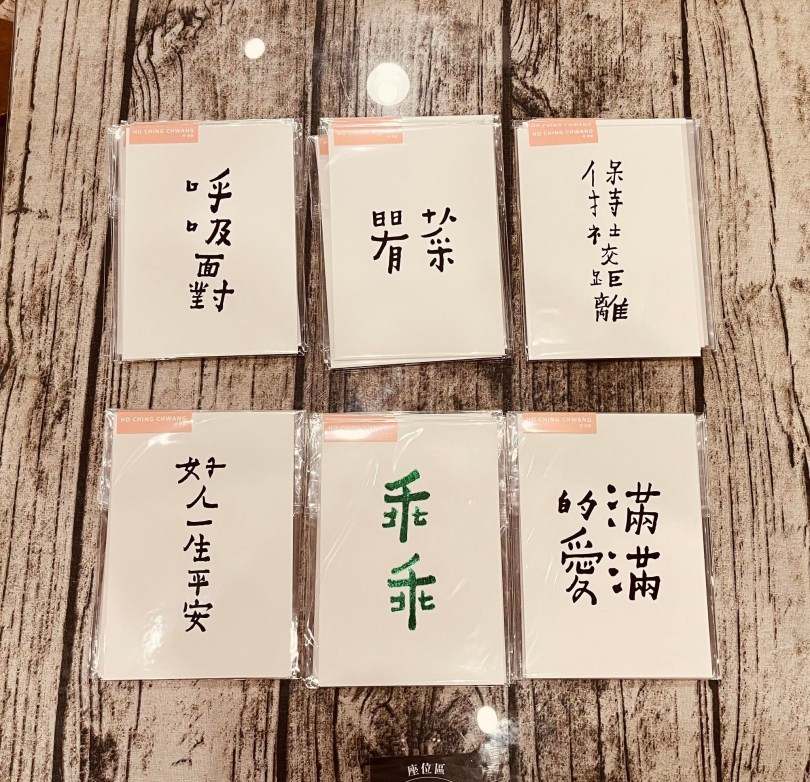 HO CHING CHWANG
呼吸面對
HO CHING CHWANG
菜
HO CHING CHWANG
HO CHING CHWANG
保持社交距離
HO CHING CHWANG
好人一生平安
乖乖
HO CHING CHWANG
滿滿
的愛
座位區